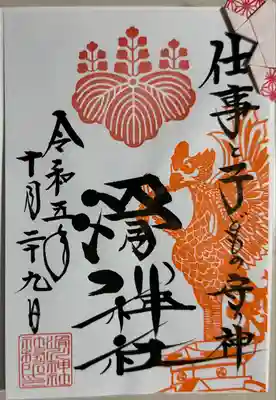 仕事と子どもの守り神
滑川神社
令和五年
十月二十九日